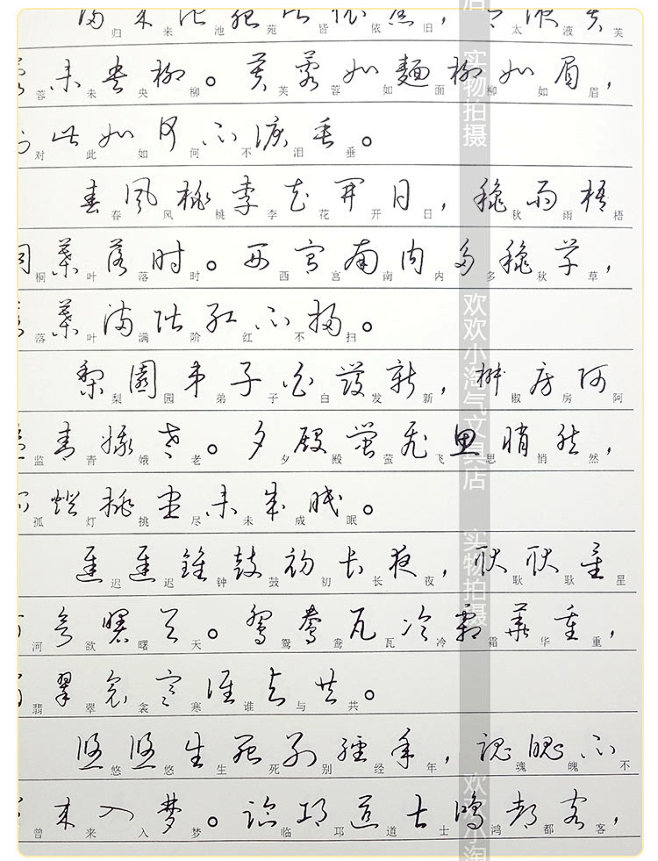 归来池苑皆依旧，太液芙
蓉未央柳。芙蓉如面柳如眉，
对此如何不泪垂。
春风桃李花开日，秋雨梧
桐叶落时。西宫南内多秋草，
落叶满阶红不扫。
梨园弟子白发新，椒房阿
监青娥老。夕殿萤飞思悄然，
孤灯挑尽未成眠。
迟迟钟鼓初长夜，耿耿星
河欲曙天。鸳鸯瓦冷霜华重，
翡翠衾寒谁与共。
悠悠生死别经年，魂魄不
曾来入梦。临邛道士鸿都客，
店 实物拍摄
欢欢小淘气文具店 实物拍摄
欢欢小淘